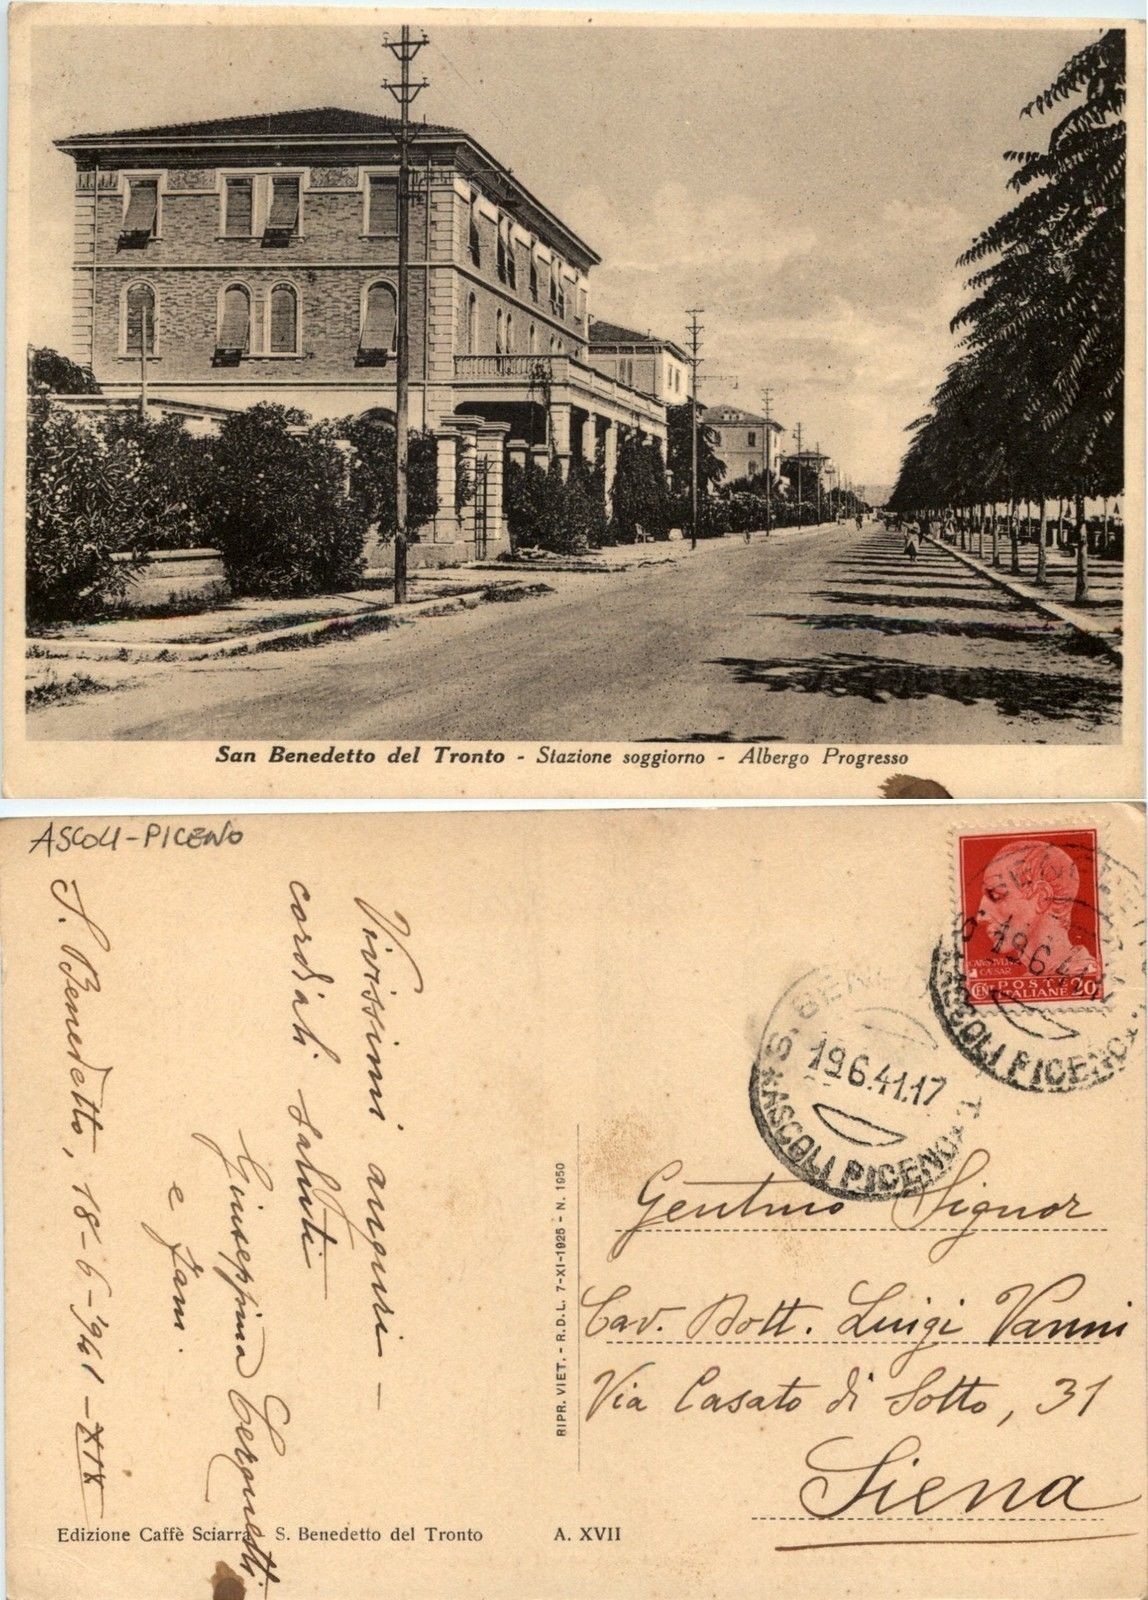 San Benedetto del Tronto - Stazione soggiorno - Albergo Progresso
ASCOLI-PICENO
S. Benedetto, 18-6-1941-XIX
Vivissimi auguri -
cordiali saluti
Giuseppina
e fam.
CAIVS IVLIVS
CAESAR
CENT POSTE
ITALIANE 20
S. BENED
19.6.41
ASCOLI PICENO
S. BENE T.
19.6.41.17
ASCOLI PICENO
RIPR. VIET. - R.D.L. 7-XI-1925 - N. 1950
Gentmo Signor
Cav. Dott. Luigi Vanni
Via Casato di Sotto, 31
Siena
Edizione Caffè Sciarra - S. Benedetto del Tronto
A. XVII